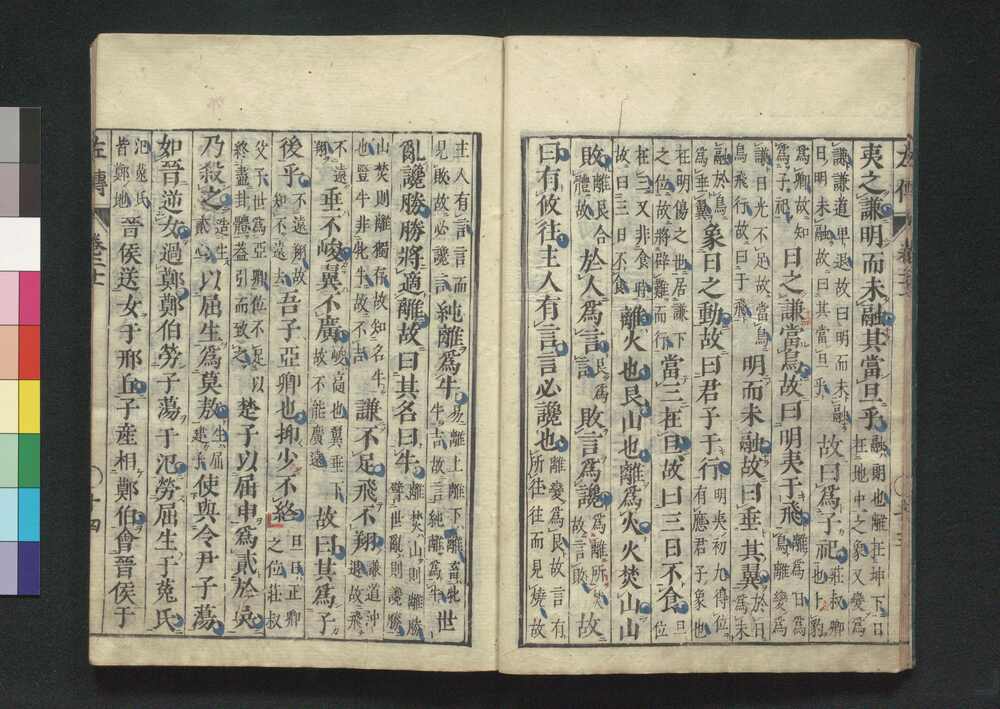 夷之謙明而未融其當旦乎融朗也離在坤下日在地中之象又變爲
謙謙道卑退故曰明而未融日明未融故曰其當旦乎故曰爲子祀莊叔卿也卜豹
爲卿故知爲子祀日之謙當鳥故曰明夷于飛離爲日爲鳥離變爲
謙日光不足故當鳥鳥飛行故曰于飛明而未融故曰垂其翼於日爲未
融於鳥爲垂翼象日之動故曰君子于行明夷初九得位有應君子象也
在明傷之世居謙下之位故將辟難而行當三在旦故曰三日不食旦位
在三又非食時故曰三日不食離火也艮山也離爲火火焚山山
敗離艮合體故於人爲言艮爲言敗言爲讒爲離所焚故言敗故
曰有攸往主人有言言必讒也離變爲艮故言有所往往而見燒故
主人有言言而見敗故必讒言純離爲牛易離上離下離畜牝牛吉故言純離爲牛世
亂讒勝勝將適離故曰其名曰牛離焚山則離勝譬世亂則讒勝
山焚則離獨存故知名牛也豎牛非牝牛故不吉謙不足飛不翔謙道沖退故飛
不遠翔垂不峻翼不廣峻高也翼垂下故不能廣遠故曰其爲子
後乎不遠翔故知不遠去吾子亞卿也抑少不終旦日正卿之位莊叔
父子世爲亞卿位不足以終盡卦體蓋引而致之楚子以屈申爲貳於吳
乃殺之造生貳心以屈生爲莫敖生屈建子使與令尹子蕩
如晉逆女過鄭鄭伯勞子蕩于氾勞屈生于菟氏
氾菟氏皆鄭地晉侯送女于邢丘子產相鄭伯會晉侯于
左傳
十四